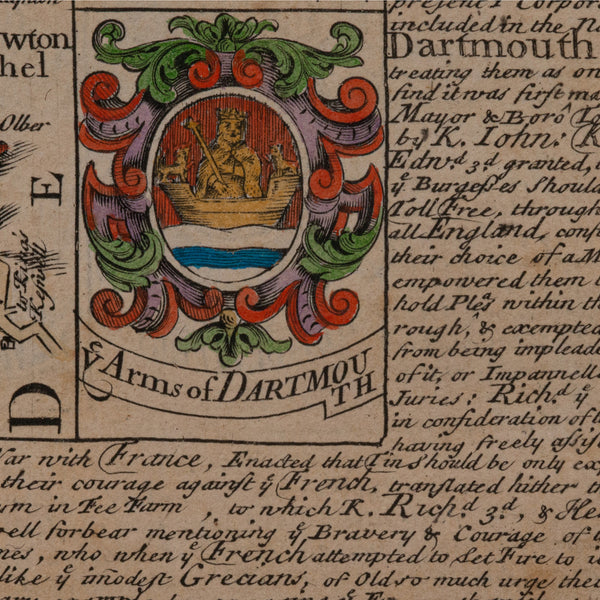 present Corpor
included in the Na
Dartmouth
treating them as on
find it was first ma
Mayor & Boro To
by K. Iohn: K
Edwd. 3d. granted,
ye Burgesses Should
Toll Free, through
all England, conf
their choice of a M
empowered them t
hold Ples within th
rough, & exempted
from being impleade
of it, or Impannell
Juries: Richd. ye
in consideration of
having freely assis
ewton
hel
Olber
D E
ye Arms of DARTMOUTH
War with France, Enacted that Tin should be only exp
their courage against ye French, translated hither th
um in Fee Farm, to which K. Richd. 3d., & He
well forbear mentioning ye Bravery & Courage of
mes, who when ye French attempted to Set Fire to
like ye imodest Grecians, of Old so much urge the